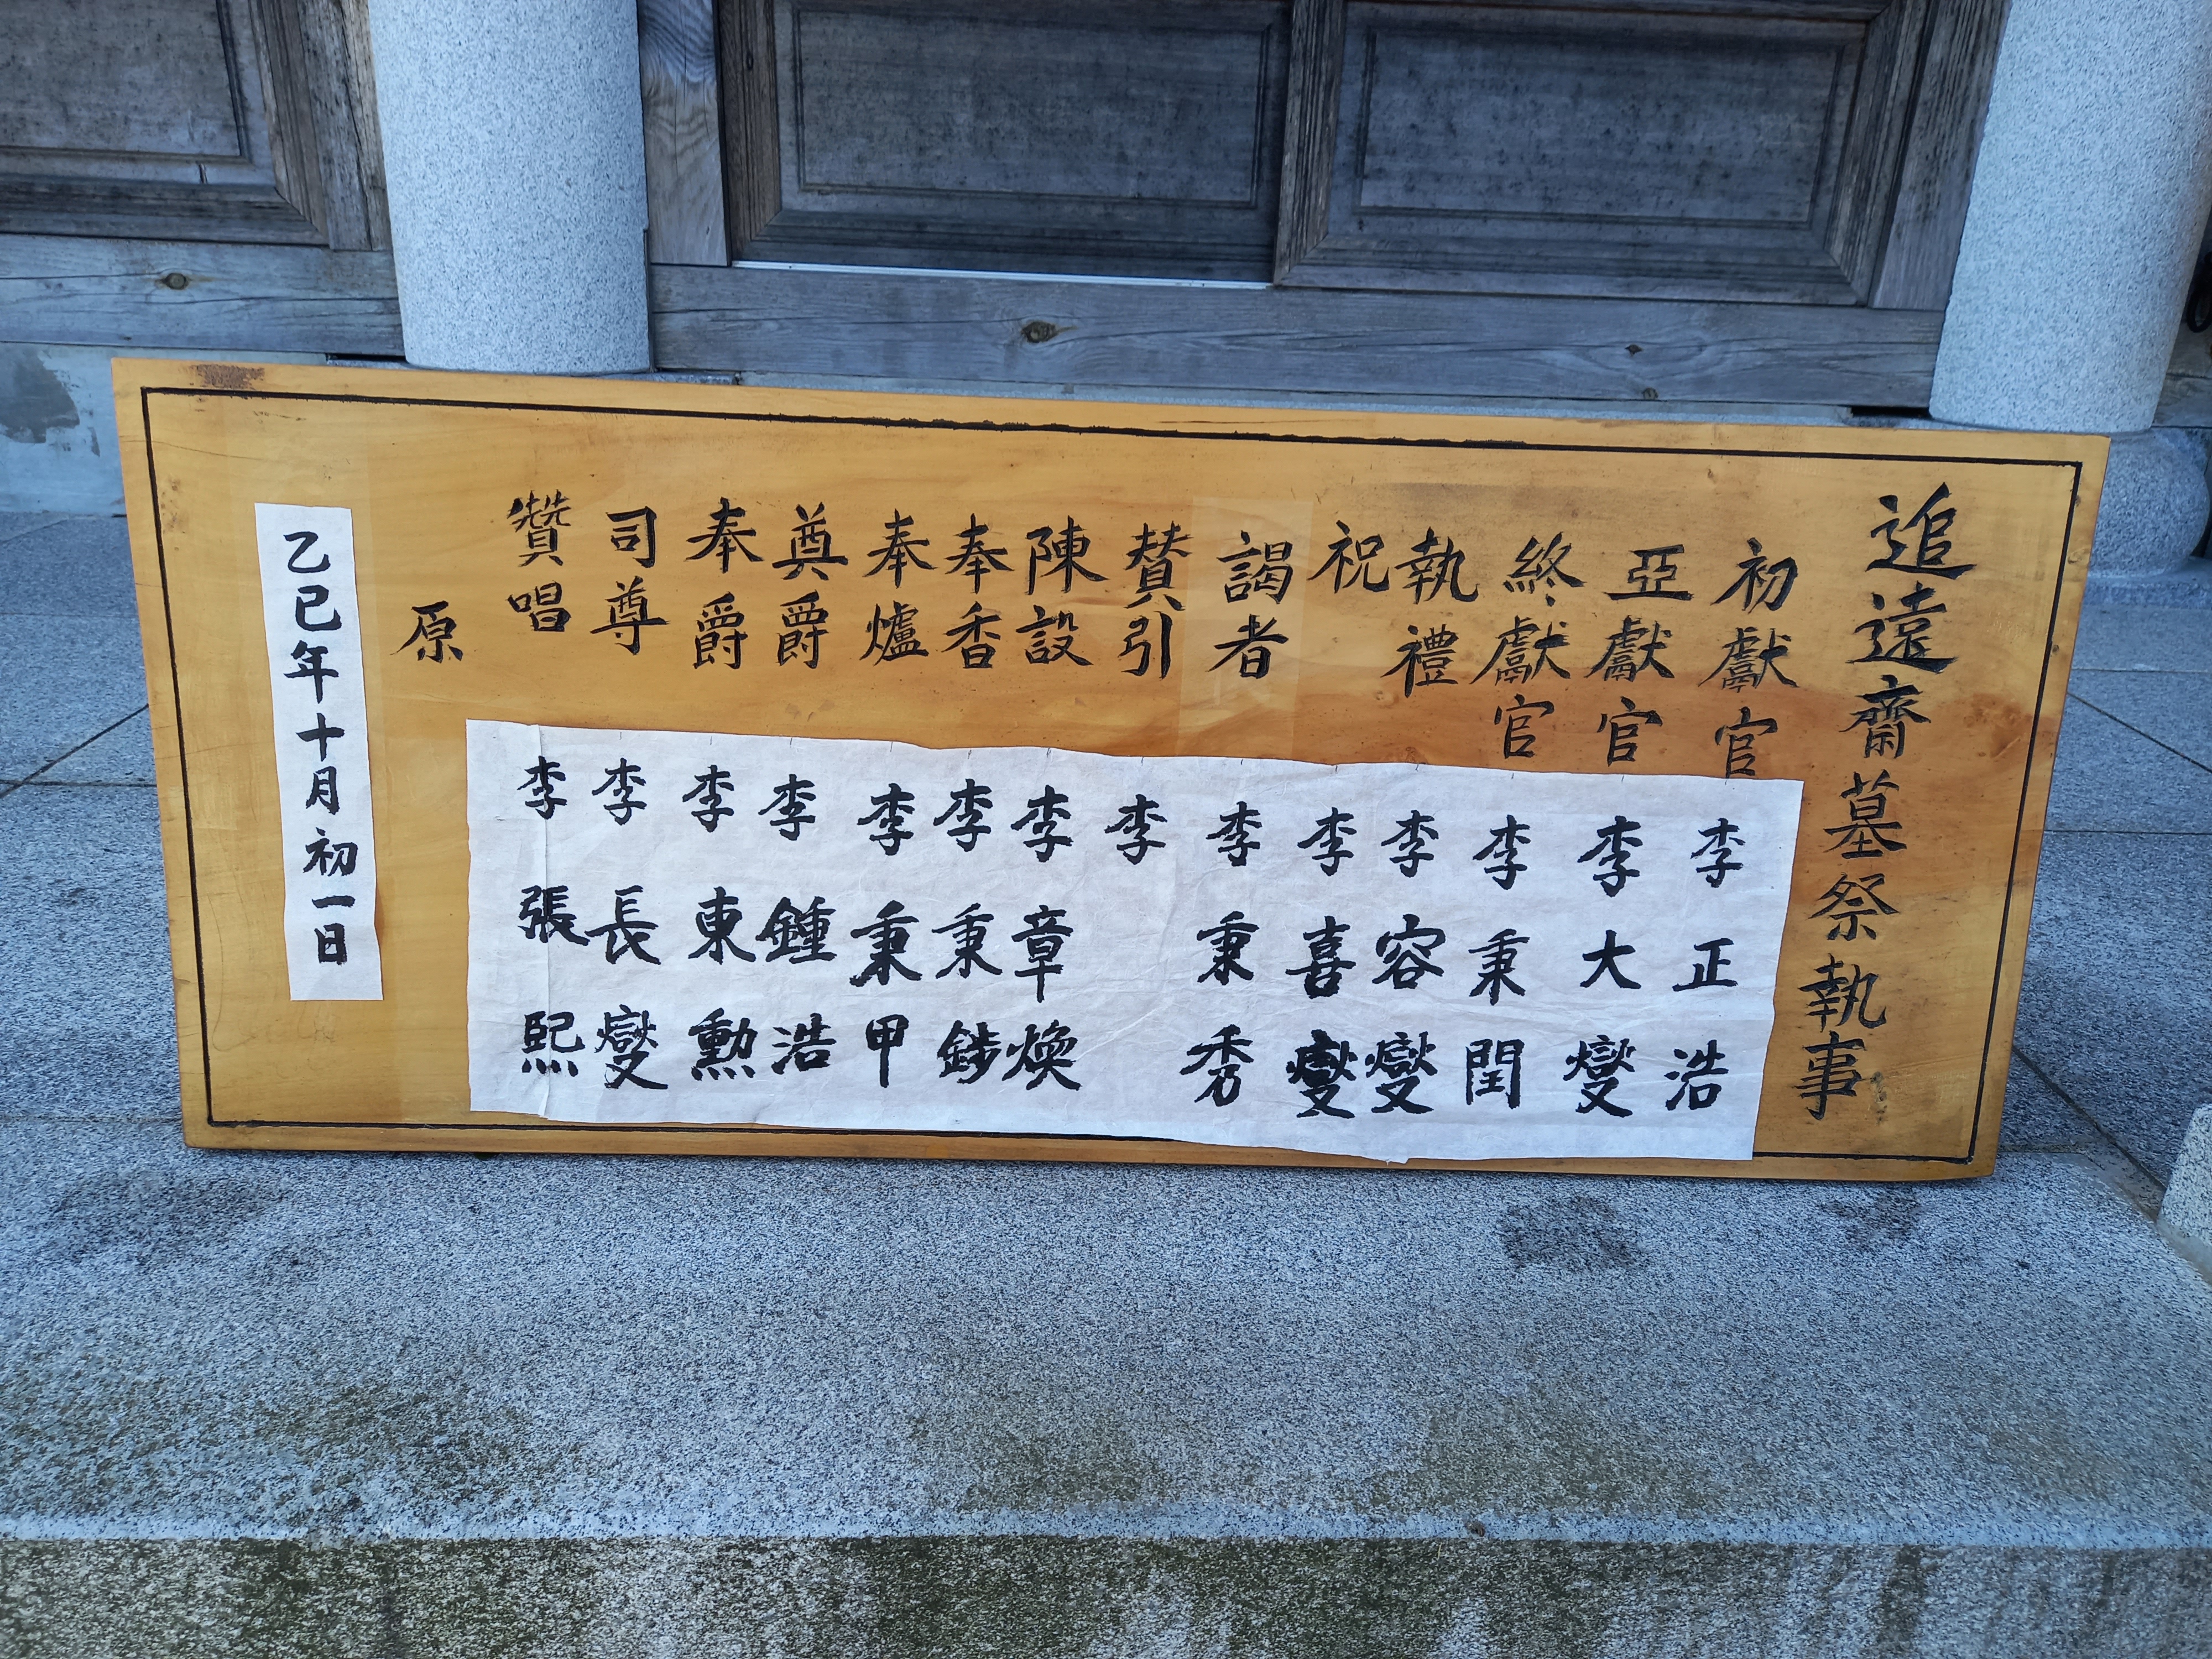 追遠齋墓祭執事
初獻官 李正浩
亞獻官 李大燮
終獻官 李秉閏
執禮 李容燮
祝 李喜燮
謁者 李秉秀
賛引 李
陳設 李章煥
奉香 李秉
奉爐 李秉甲
奠爵 李鍾浩
奉爵 李東勲
司尊 李長燮
贊唱 李張熙
原
乙巳年十月初一日